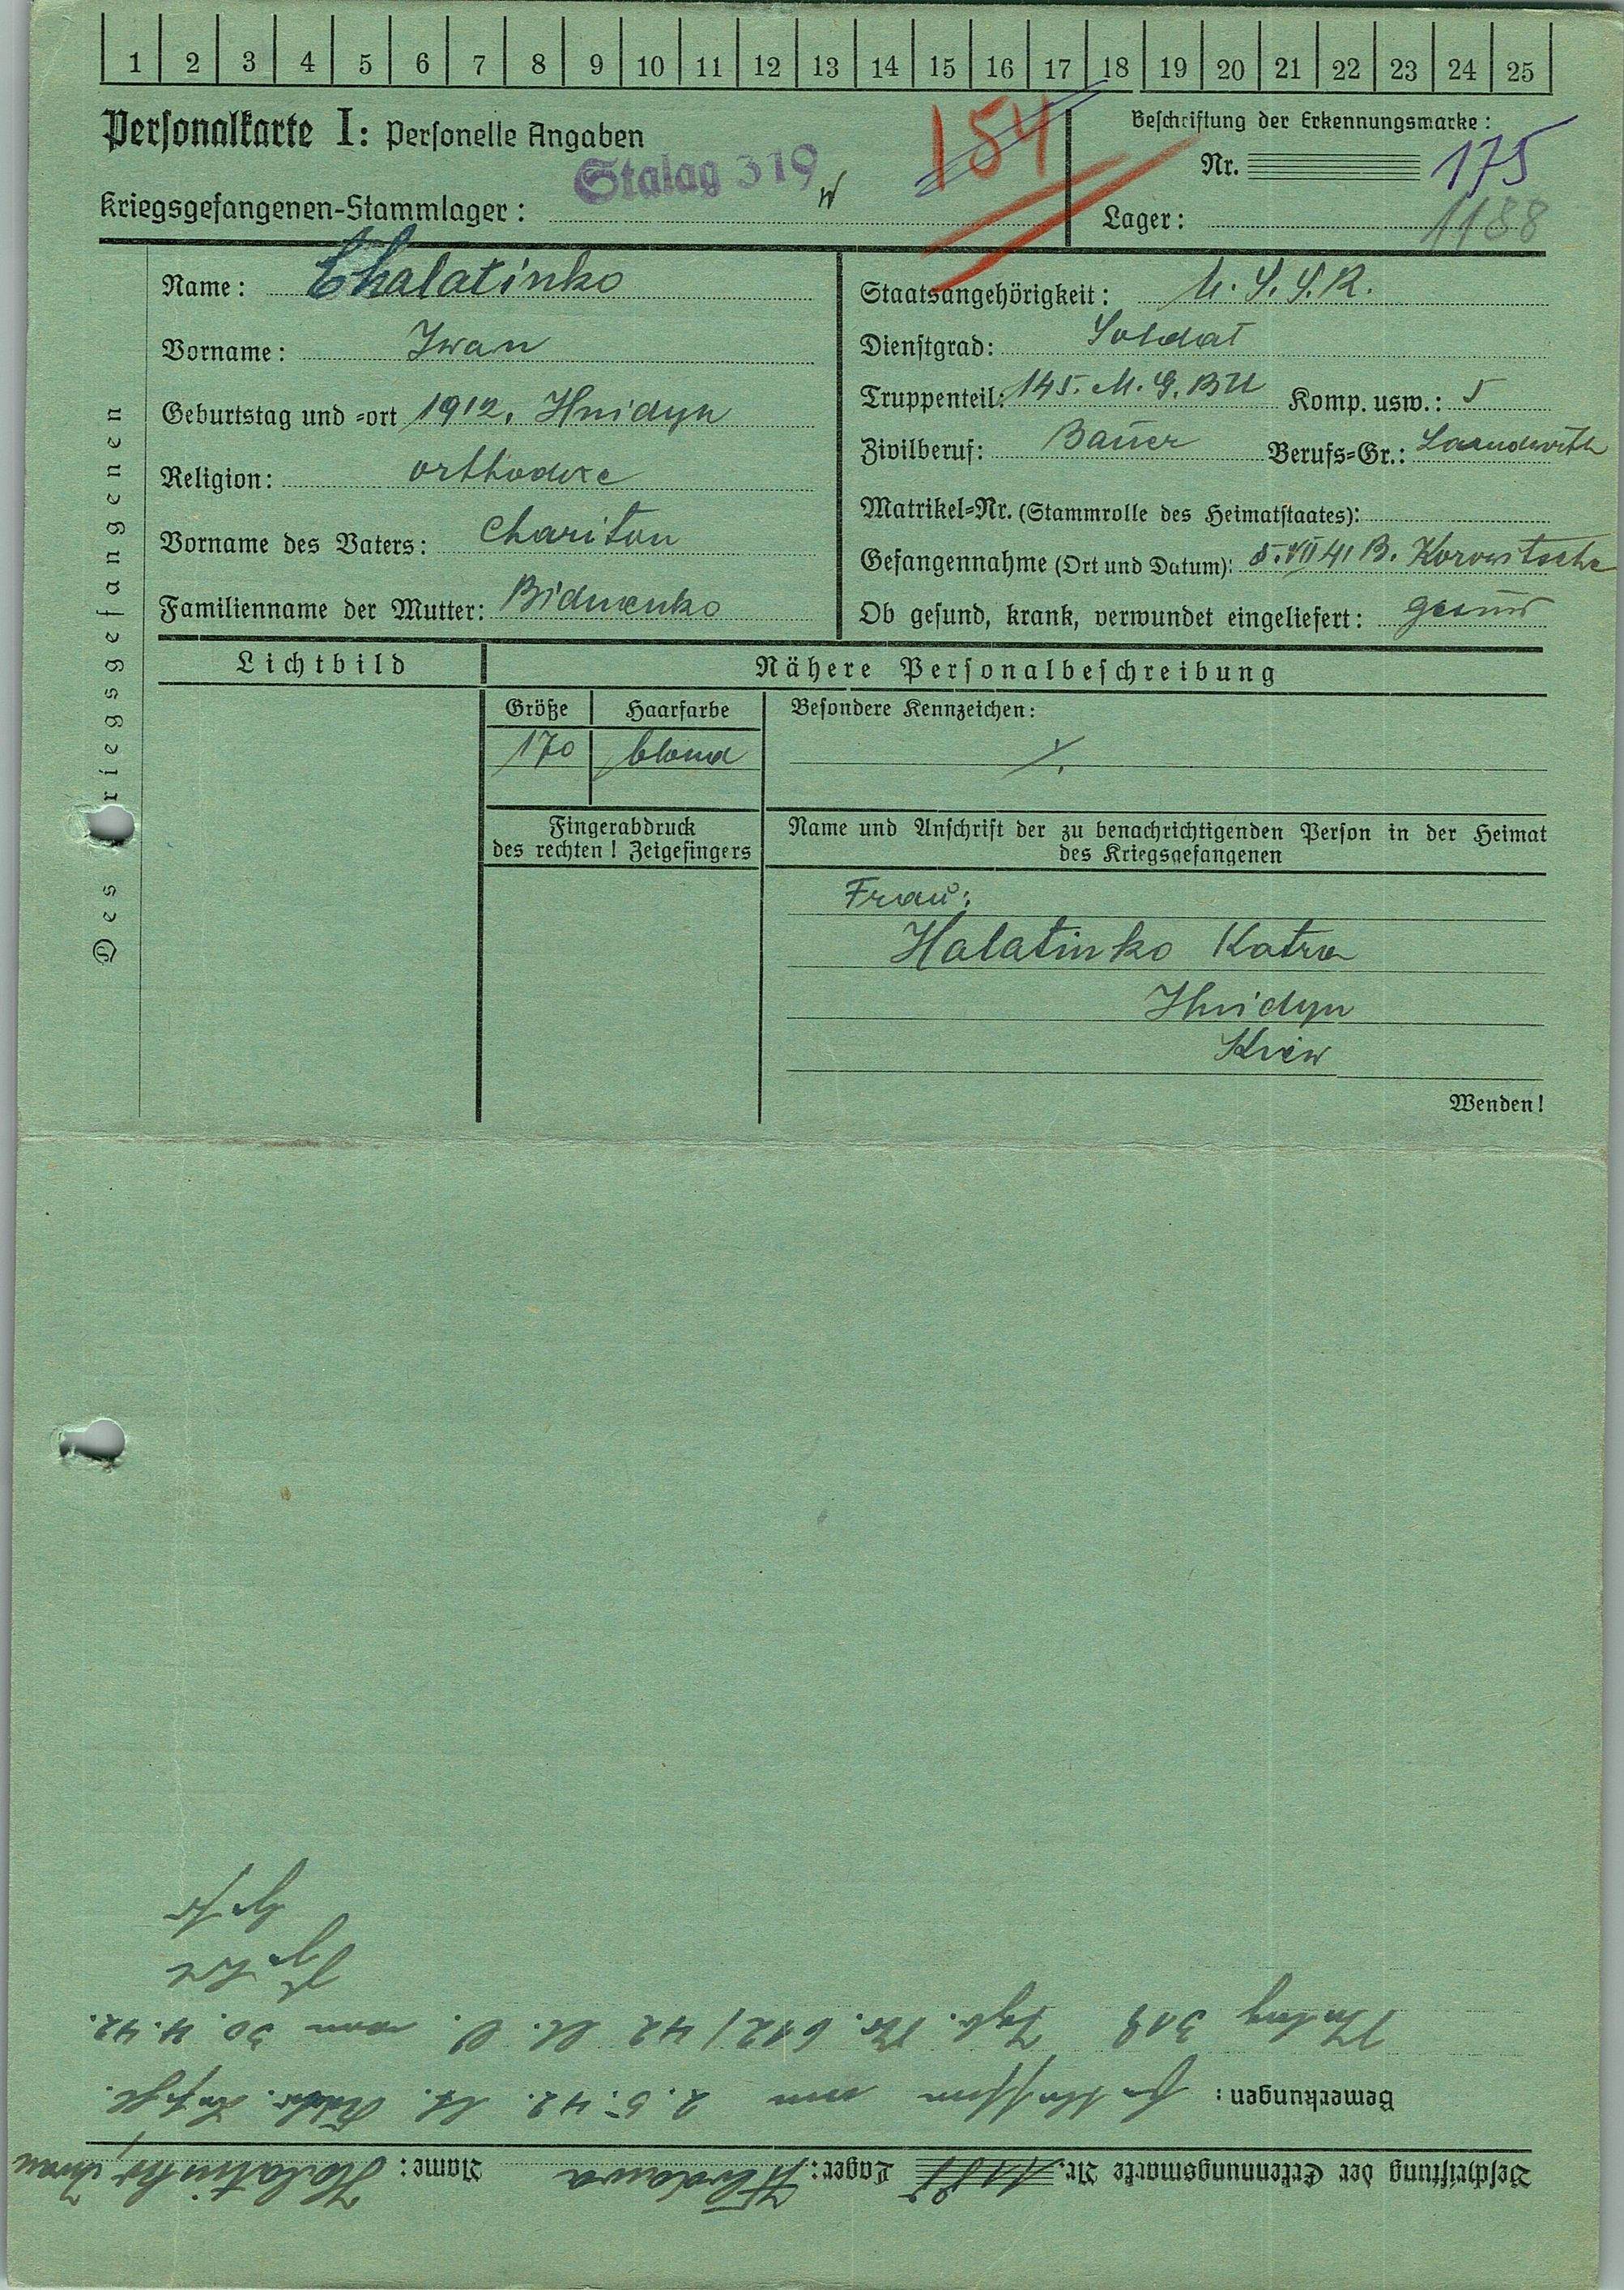 1 2 3 4 5 6 7 8 9 10 11 12 13 14 15 16 17 18 19 20 21 22 23 24 25
Personalkarte I: Personelle Angaben
Stalag 319
Kriegsgefangenen-Stammlager:
154
Beschriftung der Erkennungsmarke:
Nr. 175
Lager: 1188
Des Kriegsgefangenen
Name: Chalatinko
Vorname: Iwan
Geburtstag und =ort 1912. Hnidyn
Religion: orthodoxe
Vorname des Vaters: Chariton
Familienname der Mutter: Bidnenko
Staatsangehörigkeit: U.S.S.R.
Dienstgrad: Soldat
Truppenteil: 145. M.G. Komp. usw.: 5
Zivilberuf: Bauer Berufs=Gr.:
Matrikel=Nr. (Stammrolle des Heimatstaates):
Gefangennahme (Ort und Datum): 5.VII 41 B.
Ob gesund, krank, verwundet eingeliefert: gesund
Lichtbild
Nähere Personalbeschreibung
Größe Haarfarbe Besondere Kennzeichen:
170 blond
Fingerabdruck
des rechten! Zeigefingers
Name und Anschrift der zu benachrichtigenden Person in der Heimat
des Kriegsgefangenen
Frau:
Halatinko Katra
Hnidyn
Kiew
Wenden!
Beschriftung der Erkennungsmarke Nr. 1188 Lager: Wlodawa Name: Halatinko Iwan
Bemerkungen: Entlassen am 2.5.42. lt.
Stalag 319 Tgb. Nr. 612/42 vom 30.4.42.